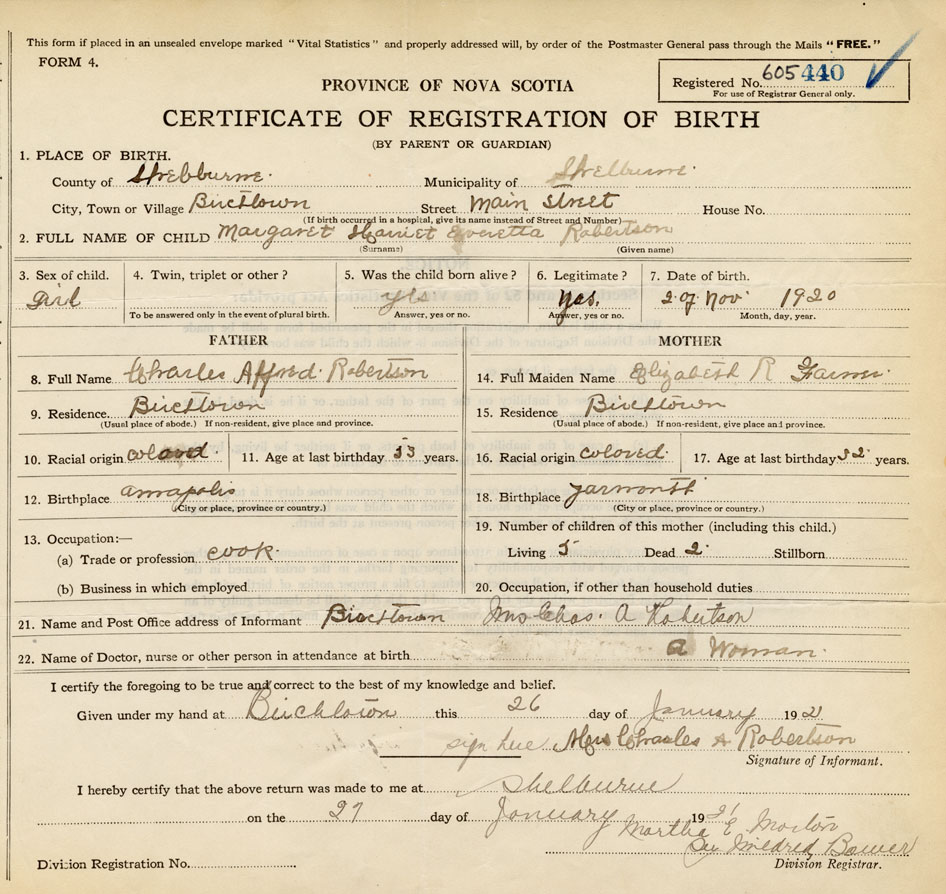 This form if placed in an unsealed envelope marked "Vital Statistics" and properly addressed will, by order of the Postmaster General pass through the Mails "FREE."
FORM 4.
Registered No. 605 440
For use of Registrar General only.
PROVINCE OF NOVA SCOTIA
CERTIFICATE OF REGISTRATION OF BIRTH
(BY PARENT OR GUARDIAN)
1. PLACE OF BIRTH.
County of Shelburne. Municipality of Shelburne.
City, Town or Village Birchtown Street Main Street House No.
(If birth occurred in a hospital, give its name instead of Street and Number)
2. FULL NAME OF CHILD Margaret Harriet Everetta Robertson
(Surname) (Given name)
3. Sex of child. 4. Twin, triplet or other? 5. Was the child born alive? 6. Legitimate? 7. Date of birth.
Girl yes yes. 2 of Nov. 1920
To be answered only in the event of plural birth. Answer, yes or no. Answer, yes or no. Month, day, year.
FATHER MOTHER
8. Full Name Charles Alfred Robertson 14. Full Maiden Name Elizabeth R Farmer
9. Residence. Birchtown 15. Residence Birchtown
(Usual place of abode.) If non-resident, give place and province. (Usual place of abode.) If non-resident, give place and province.
10. Racial origin colored. 11. Age at last birthday 53 years. 16. Racial origin colored. 17. Age at last birthday 32 years.
12. Birthplace annapolis 18. Birthplace yarmouth
(City or place, province or country.) (City or place, province or country.)
19. Number of children of this mother (including this child.)
13. Occupation:—
(a) Trade or profession cook. Living 5 Dead 2. Stillborn
(b) Business in which employed 20. Occupation, if other than household duties
21. Name and Post Office address of Informant Birchtown Mrs Chas. A Robertson
22. Name of Doctor, nurse or other person in attendance at birth a Woman.
I certify the foregoing to be true and correct to the best of my knowledge and belief.
Given under my hand at Birchtown this 26 day of January 1921
sign here. Mrs Charles A Robertson
Signature of Informant.
I hereby certify that the above return was made to me at Shelburne
on the 27 day of January 1921
Martha E Morton
Per Mildred Bower
Division Registration No. Division Registrar.